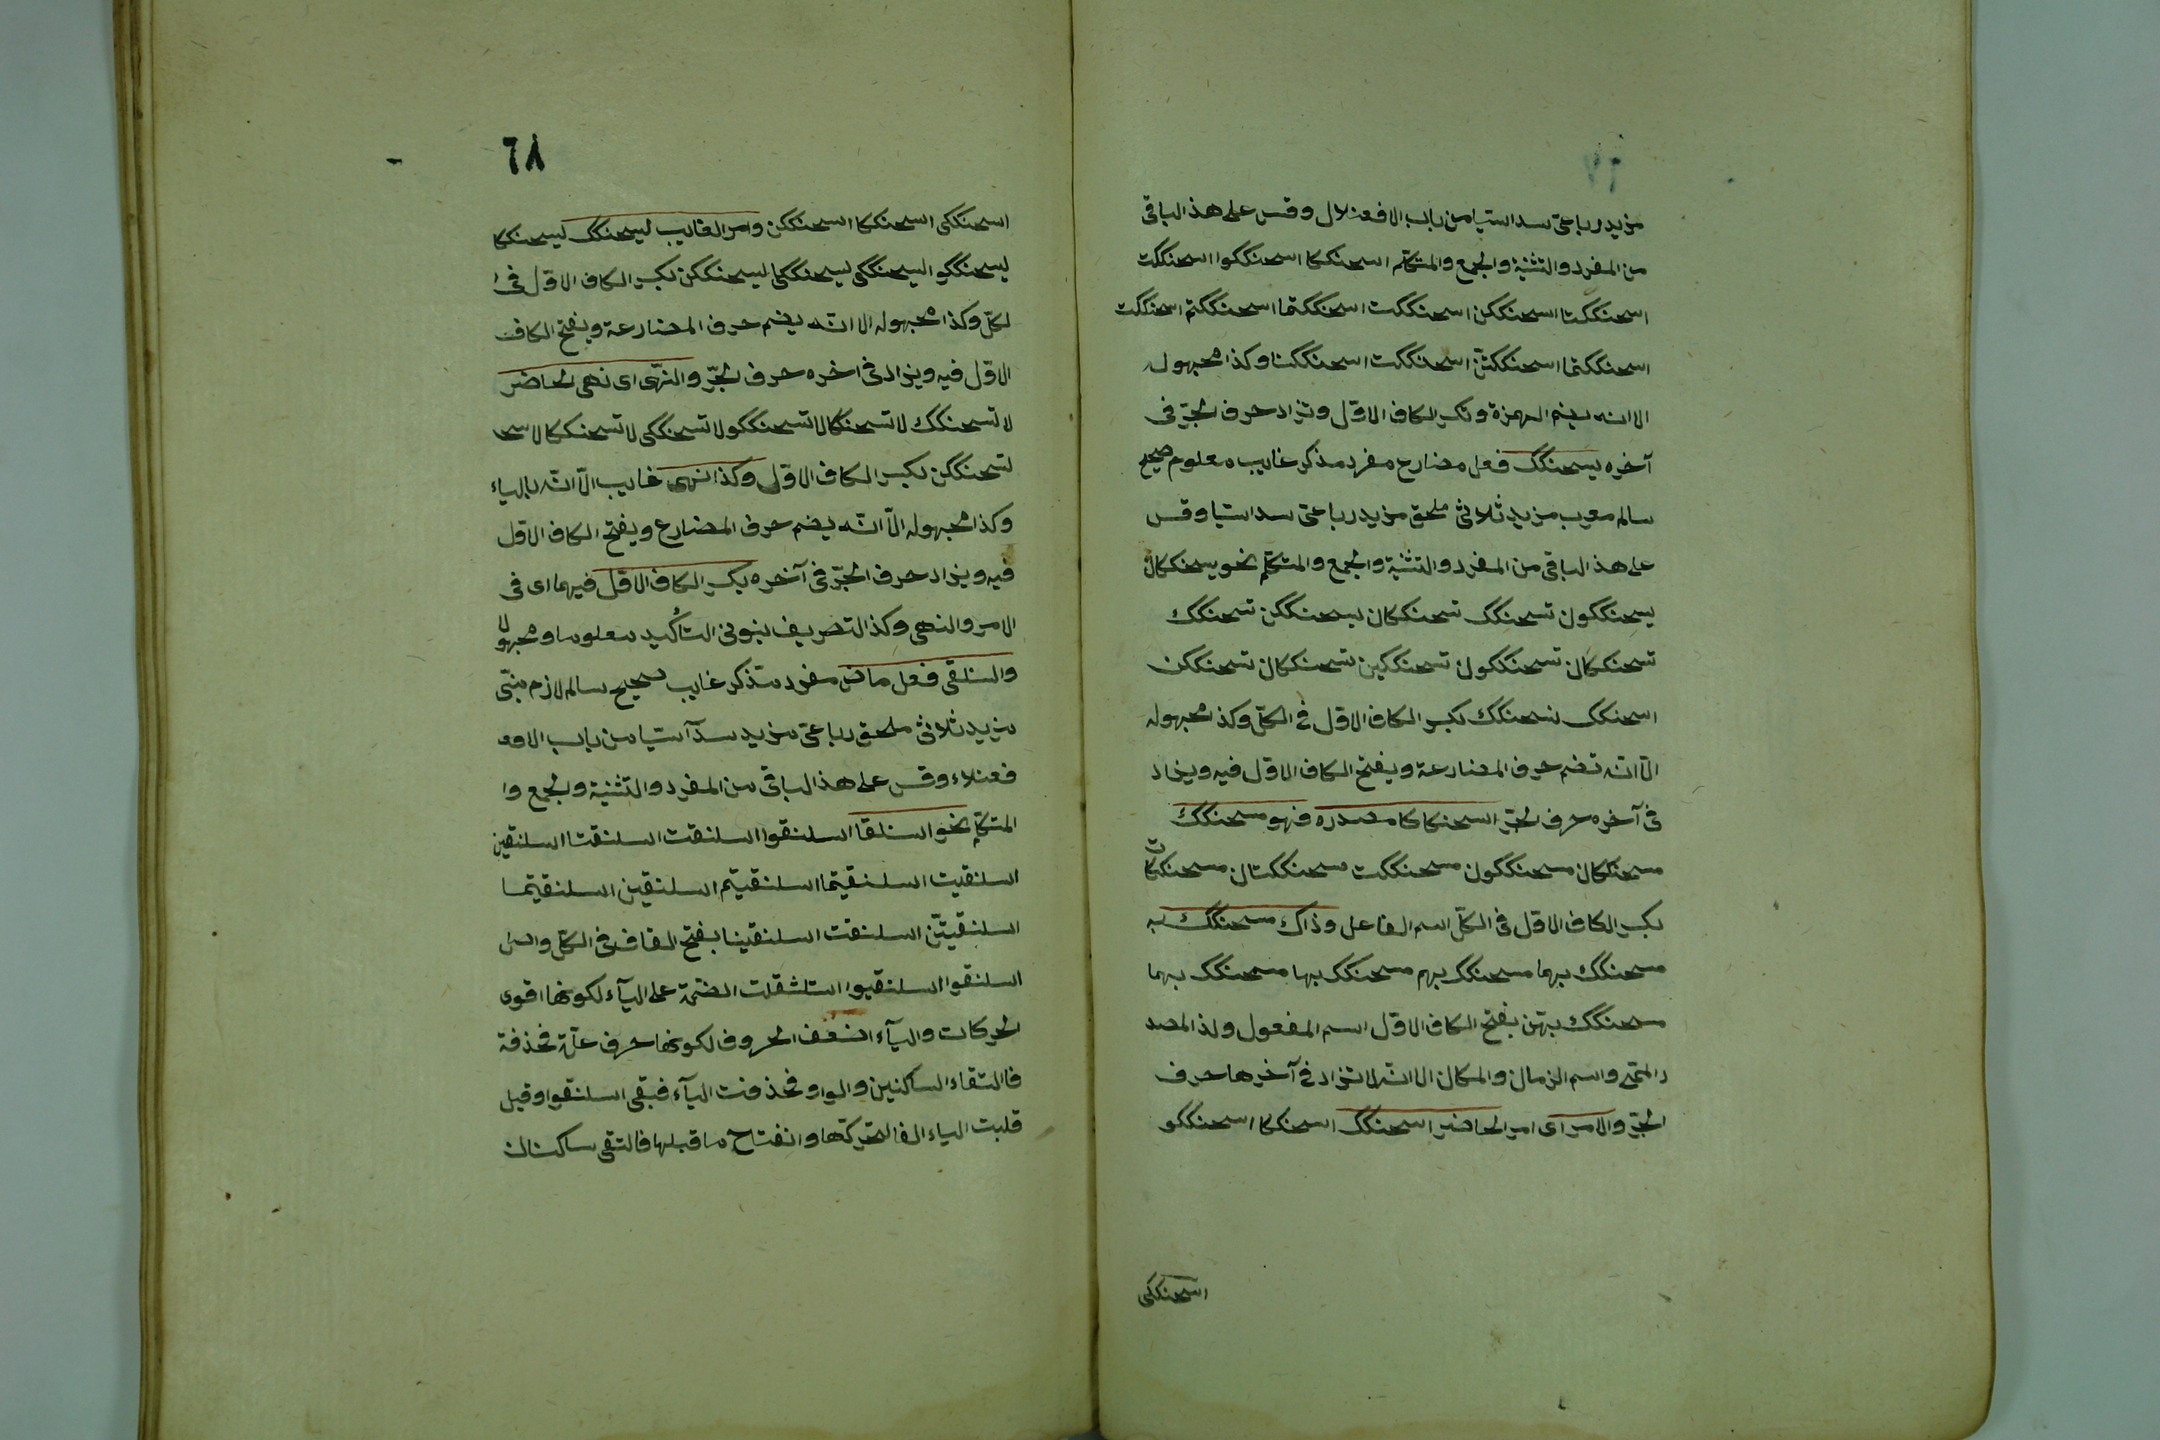 مزيد رباعى سداسيا من باب الافعنلال وقس على هذ الباقى
من المفرد والتثنية والجمع والمتكلم اسحنككا اسحنككوا اسحنككت
اسحنككتا اسحنككن اسحنككت اسحنككتما اسحنككتم اسحنككت
اسحنككتما اسحنككتنّ اسحنككت اسحنككنا وكذا مجهوله
الا انه يضم الهمزة وتكسر الكاف الاوّل وتزاد حرف الجرّ فى
آخره يسحنكك فعل مضارع مفرد مذكر غايب معلوم صحيح
سالم معرب مزيد ثلاثى ملحق مزيد رباعى سداسيا وقس
على هذ الباقى من المفرد والتثنية والجمع والمتكلم نحو يسحنككان
يسحنككون تسحنكك تسحنككان يسحنككن تسحنكك
تسحنككان تسحنككون تسحنككين تسحنككان تسحنككن
اسحنكك نسحنكك بكسر الكاف الاول فى الكلّ وكذ مجهوله
الّا انّه تضم حرف المضارعة ويفتح الكاف الاوّل فيه ويزاد
فى آخره حرف الجرّ اسحنكاكا مصدره فهو مسحنكك
مسحنككان مسحنككون مسحنككت مسحنككتان مسحنككات
بكسر الكاف الاول فى الكلّ اسم الفاعل وذاك مسحنكك به
مسحنكك بهما مسحنكك بهم مسحنكك بها مسحنكك بهما
مسحنكك بهنّ بفتح الكاف الاوّل اسم المفعول وكذا المصد
ر الميمى واسم الزمان والمكان الا انّه لا تزاد فى آخرها حرف
الجرّ والامر اى امر الحاضر اسحنكك اسحنككا اسحنككو
اسحنككى
٦٨
اسحنككى اسحنككا اسحنككن وامر الغايب ليسحنكك ليسحنككا
ليسحنككوا لتسحنكك لتسحنككا ليسحنككن بكسر الكاف الاوّل فى
لكلّ وكذا مجهوله الا انّه يضم حرف المضارعة ويفتح الكاف
الاوّل فيه ويزاد فى اخره حرف الجرّ والنّهى اى نهى الحاضر
لا تسحنكك لا تسحنككا لا تسحنككو لا تسحنككى لا تسحنككا لا تسحـ
تسحنككن بكسر الكاف الاوّل وكذا نهى غايب الّا انّه بالياء
وكذا مجهوله الّا انّه يضم حرف المضارع ويفتح الكاف الاوّل
فيه ويزاد حرف الجرّ فى آخره بكسر الكاف الاوّل فيهما اى فى
الامر والنهى وكذ التصريف بنونى التأكيد معلوما ومجهولا
واسلنقى فعل ماض مفرد مذكر غايب صحيح سالم لازم مبنى
مزيد ثلاثى ملحق رباعى مزيد سداسيا من باب الافع
فعنلاء وقس على هذ الباقى من المفرد والتثنية والجمع وا
المتكلم نحو اسلنقا اسلنقوا اسلنقت اسلنقتا اسلنقين
اسلنقيت اسلنقيتما اسلنقيتم اسلنقين اسلنقيتما
اسلنقيتنّ اسلنقت اسلنقينا بفتح القاف فى الكلّ واصل
اسلنقوا اسلنقيوا استثقلت الضمّة على اليآء لكونها اقوى
الحركات واليآء اضعف الحروف لكونها حرف علّة فحذفة
فالتقاء الساكنين والواو فحذفت اليآء فبقى اسلنقوا وقيل
قلبت الياء الفا لتحركها وانفتاح ما قبلها فالتقى ساكنان